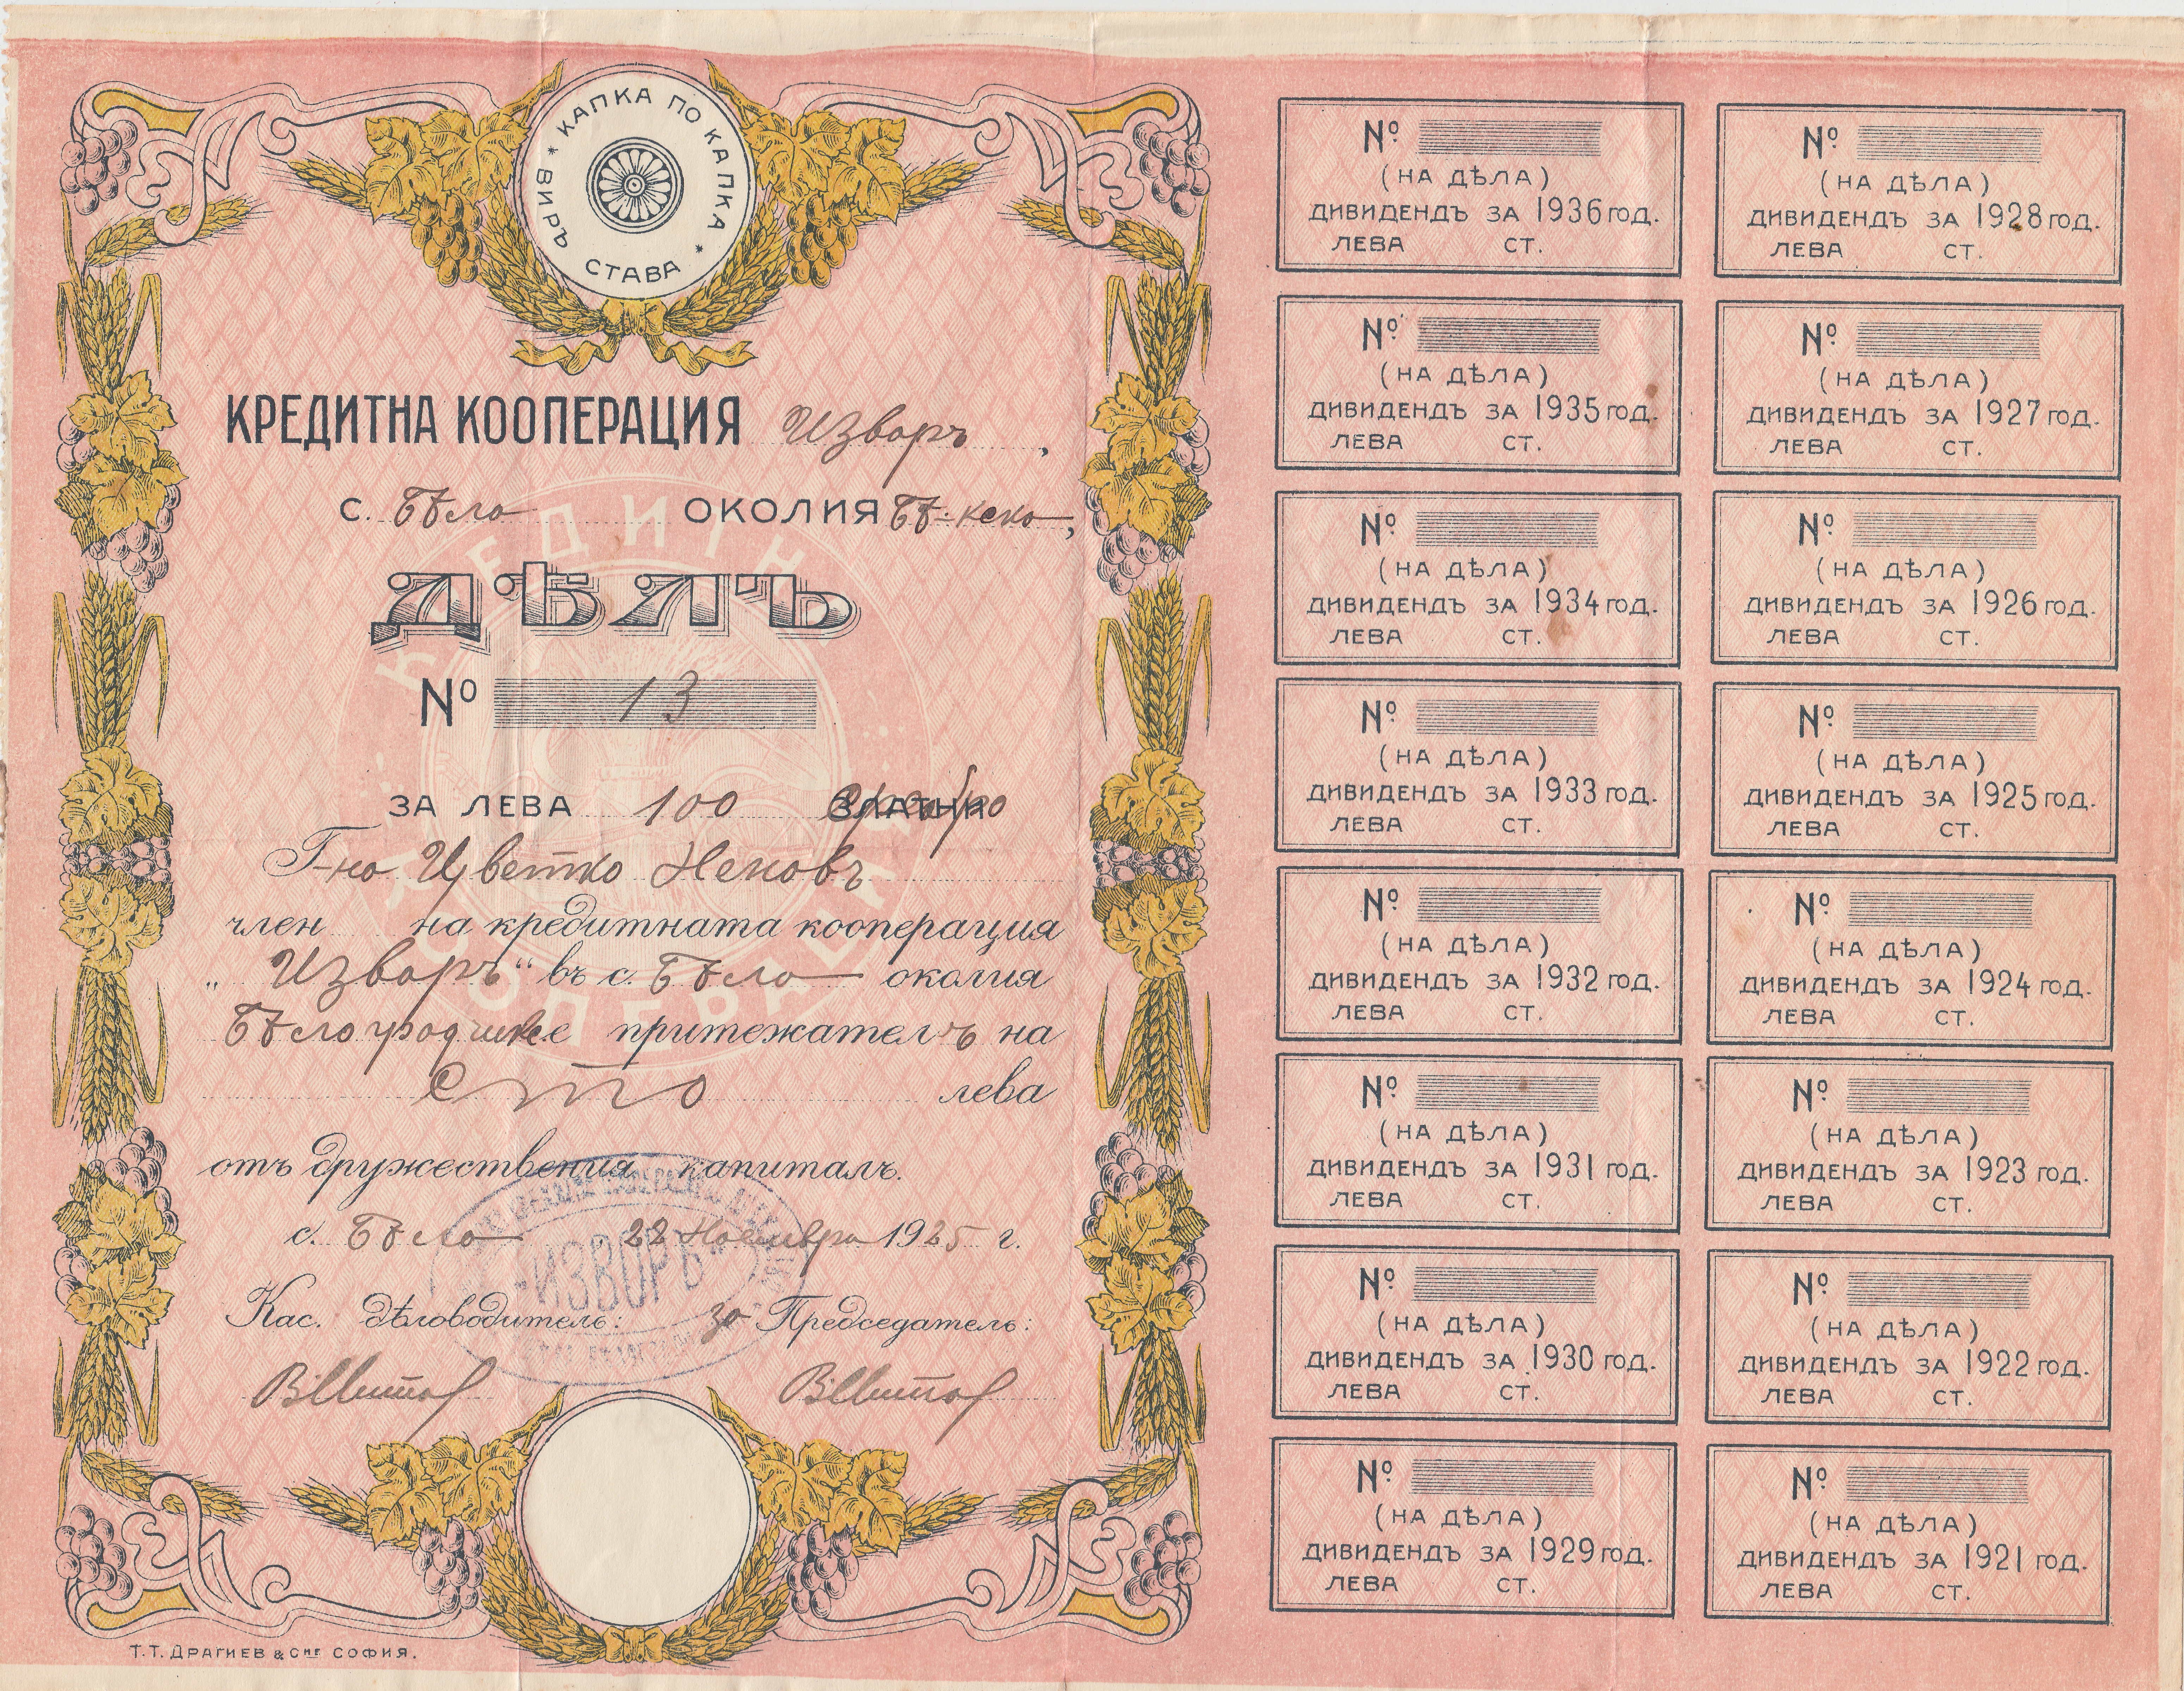 * КАПКА ПО КАПКА * ВИРЪ СТАВА
КРЕДИТНА КООПЕРАЦИЯ Изворъ ,
с. Бѣло ОКОЛИЯ Бѣ-ско,
КРЕДИТНА КООПЕРАЦИЯ
ДѢЛЪ
№ 13
ЗА ЛЕВА 100 ЗЛАТНИ сребро
Г-нъ Цветко Неновъ
член на кредитната кооперация
„ Изворъ“ въ с. Бѣло околия
Бѣлоградшка е притежателъ на
сто лева
отъ дружествения капиталъ.
с. Бѣло 22 Ноември 1925 г.
„ИЗВОРЪ“
Кас. дѣловодитель: за Председатель:
Т.Т. ДРАГИЕВ & СИЕ СОФИЯ.
№
(НА ДѢЛА)
ДИВИДЕНДЪ ЗА 1936 ГОД.
ЛЕВА СТ.
№
(НА ДѢЛА)
ДИВИДЕНДЪ ЗА 1928 ГОД.
ЛЕВА СТ.
№
(НА ДѢЛА)
ДИВИДЕНДЪ ЗА 1935 ГОД.
ЛЕВА СТ.
№
(НА ДѢЛА)
ДИВИДЕНДЪ ЗА 1927 ГОД.
ЛЕВА СТ.
№
(НА ДѢЛА)
ДИВИДЕНДЪ ЗА 1934 ГОД.
ЛЕВА СТ.
№
(НА ДѢЛА)
ДИВИДЕНДЪ ЗА 1926 ГОД.
ЛЕВА СТ.
№
(НА ДѢЛА)
ДИВИДЕНДЪ ЗА 1933 ГОД.
ЛЕВА СТ.
№
(НА ДѢЛА)
ДИВИДЕНДЪ ЗА 1925 ГОД.
ЛЕВА СТ.
№
(НА ДѢЛА)
ДИВИДЕНДЪ ЗА 1932 ГОД.
ЛЕВА СТ.
№
(НА ДѢЛА)
ДИВИДЕНДЪ ЗА 1924 ГОД.
ЛЕВА СТ.
№
(НА ДѢЛА)
ДИВИДЕНДЪ ЗА 1931 ГОД.
ЛЕВА СТ.
№
(НА ДѢЛА)
ДИВИДЕНДЪ ЗА 1923 ГОД.
ЛЕВА СТ.
№
(НА ДѢЛА)
ДИВИДЕНДЪ ЗА 1930 ГОД.
ЛЕВА СТ.
№
(НА ДѢЛА)
ДИВИДЕНДЪ ЗА 1922 ГОД.
ЛЕВА СТ.
№
(НА ДѢЛА)
ДИВИДЕНДЪ ЗА 1929 ГОД.
ЛЕВА СТ.
№
(НА ДѢЛА)
ДИВИДЕНДЪ ЗА 1921 ГОД.
ЛЕВА СТ.